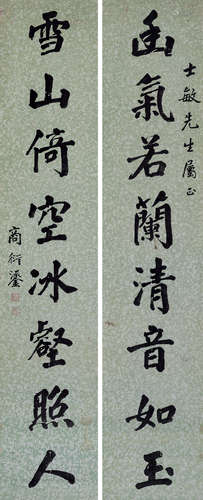 士敏先生屬正
幽氣若蘭清音如玉
雪山倚空冰壑照人
商衍鎏